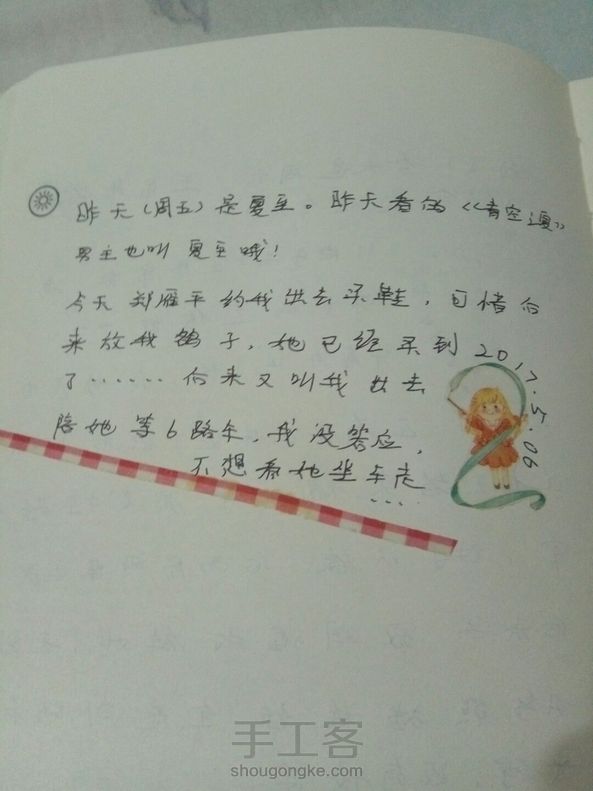 昨天(周五)是夏至。昨天看的《青空之夏》
男主也叫夏至哦!
今天郑雁平约我出去买鞋,可惜后
来放我鸽子,她已经买到
了……后来又叫我出去
陪她等6路车,我没答应,
不想看她坐车走
…
2017.5.06
手工客
shougongke.com